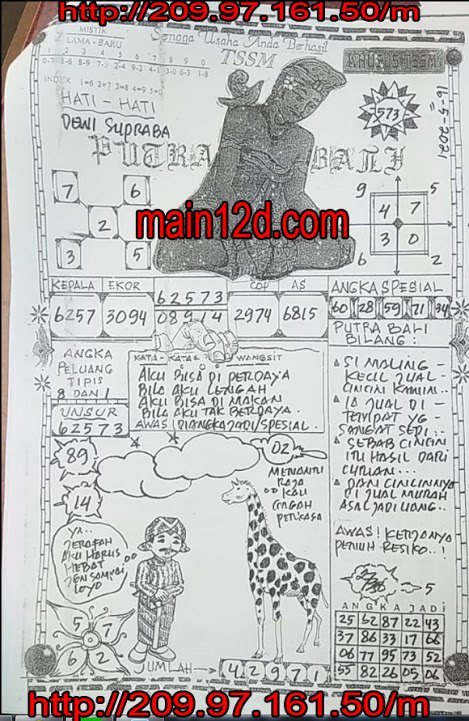 http://209.97.161.50/m
MISTIK
LAMA - BARU
Semoga Usaha Anda Berhasil
TSSM
KHUSUS TSSM
INDEX 1=6 2=7 3=8 4=9 5=
HATI - HATI
DEWI SUPRABA
573
16-5-2021
PUTRA BALI
7 6
2
3 5
9 5
4 7
3 0
6 2
main12d.com
KEPALA EKOR
62573
COP AS
ANGKA SPESIAL
6257 3094 08914 2974 6815
60 28 59 71 34
PUTRA BALI
BILANG :
ANGKA
PELUANG
TIPIS
8 DAN 1
UNSUR
62573
KATA - KATA WANGSIT
AKU BISA DI PERDAYA
BILA AKU LENGAH
AKU BISA DI MAKAN
BILA AKU TAK BERDAYA.
AWAS! DIANGKA JADI/SPESIAL.
SI MALING -
KECIL JUAL -
CINCIN KAWIN..
IA JUAL DI -
TEMPAT YG -
SANGAT SEPI..
SEBAB CINCIN
ITU HASIL DARI
CURIAN...
DAN CINCINNYA
DI JUAL MURAH
ASAL JADI UANG..
AWAS! KERJANYA
PENUH RESIKO..!
89
14
02
MENANTU
RAJA
KAU
GAGAH
PERKASA
YA..
JERAPAH
AKU HARUS
HEBAT
JGN SAMPAI
LOYO
5 7
6 2
JUMLAH → 42971
5
ANGKA JADI
25 62 87 22 43
37 86 33 17 66
06 77 95 73 52
55 82 26 05 06
http://209.97.161.50/m